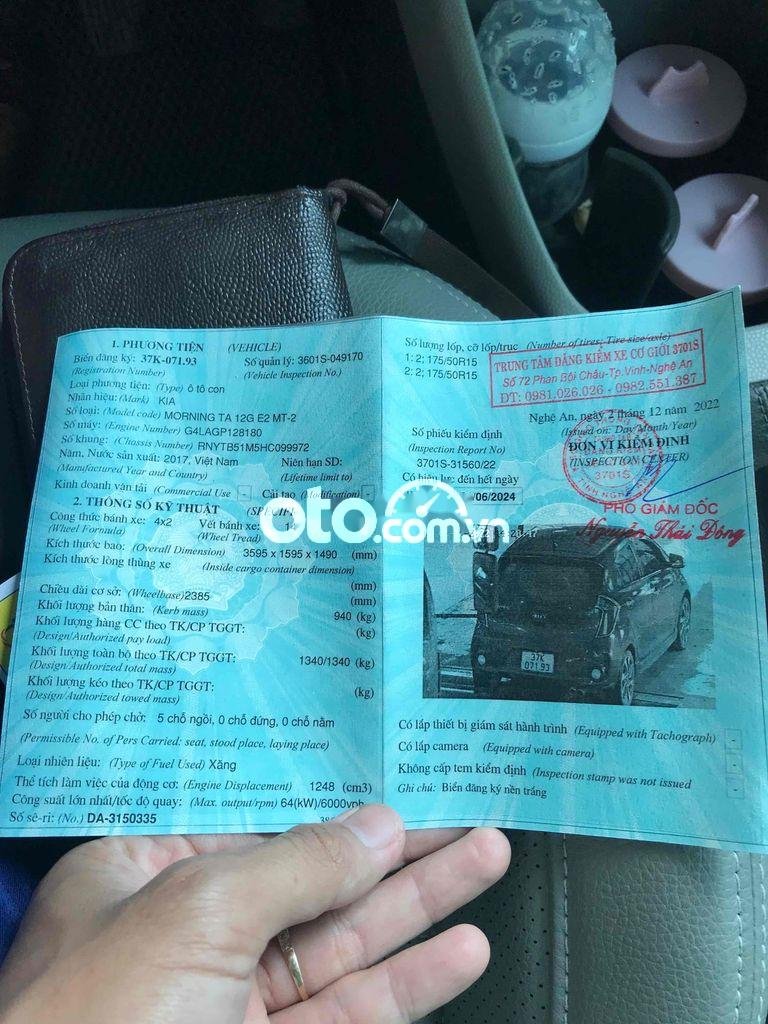 1. PHƯƠNG TIỆN (VEHICLE)
Biển đăng ký: 37K-071.93 Số quản lý: 3601S-049170
(Registration Number) (Vehicle Inspection No.)
Loại phương tiện: (Type) ô tô con
Nhãn hiệu: (Mark) KIA
Số loại: (Model code) MORNING TA 12G E2 MT-2
Số máy: (Engine Number) G4LAGP128180
Số khung: (Chassis Number) RNYTB51M5HC099972
Năm, Nước sản xuất: 2017, Việt Nam Niên hạn SD:
(Manufactured Year and Country) (Lifetime limit to)
Kinh doanh vận tải (Commercial Use - Cải tạo (Modification) -
2. THÔNG SỐ KỸ THUẬT (SPECIFI
Công thức bánh xe: 4x2 Vết bánh xe: 14
(Wheel Formula) (Wheel Tread)
Kích thước bao: (Overall Dimension) 3595 x 1595 x 1490 (mm)
Kích thước lòng thùng xe (Inside cargo container dimension)
(mm)
Chiều dài cơ sở: (Wheelbase) 2385 (mm)
Khối lượng bản thân: (Kerb mass) 940 (kg)
Khối lượng hàng CC theo TK/CP TGGT: (kg)
(Design/Authorized pay load)
Khối lượng toàn bộ theo TK/CP TGGT: 1340/1340 (kg)
(Design/Authorized total mass)
Khối lượng kéo theo TK/CP TGGT: (kg)
(Design/Authorized towed mass)
Số người cho phép chở: 5 chỗ ngồi, 0 chỗ đứng, 0 chỗ nằm
(Permissible No. of Pers Carried: seat, stood place, laying place)
Loại nhiên liệu: (Type of Fuel Used) Xăng
Thể tích làm việc của động cơ: (Engine Displacement) 1248 (cm3)
Công suất lớn nhất/tốc độ quay: (Max. output/rpm) 64(kW)/6000vph
Số sê-ri: (No.) DA-3150335
Số lượng lốp, cỡ lốp/trục (Number of tires; Tire size/axle)
1: 2; 175/50R15
2: 2; 175/50R15
TRUNG TÂM ĐĂNG KIỂM XE CƠ GIỚI 3701S
Số 72 Phan Bội Châu-Tp.Vinh-Nghệ An
ĐT: 0981.026.026 - 0982.551.387
Nghệ An, ngày 2 tháng 12 năm 2022
(Issued on: Day/Month/Year)
Số phiếu kiểm định
(Inspection Report No)
3701S-31560/22
ĐƠN VỊ KIỂM ĐỊNH
(INSPECTION CENTER)
3701S
Có hiệu lực đến hết ngày
/06/2024
PHÓ GIÁM ĐỐC
Nguyễn Thái Đông
oto.com.vn
37K
071.93
Có lắp thiết bị giám sát hành trình (Equipped with Tachograph) -
Có lắp camera (Equipped with camera) -
Không cấp tem kiểm định (Inspection stamp was not issued -
Ghi chú: Biển đăng ký nền trắng